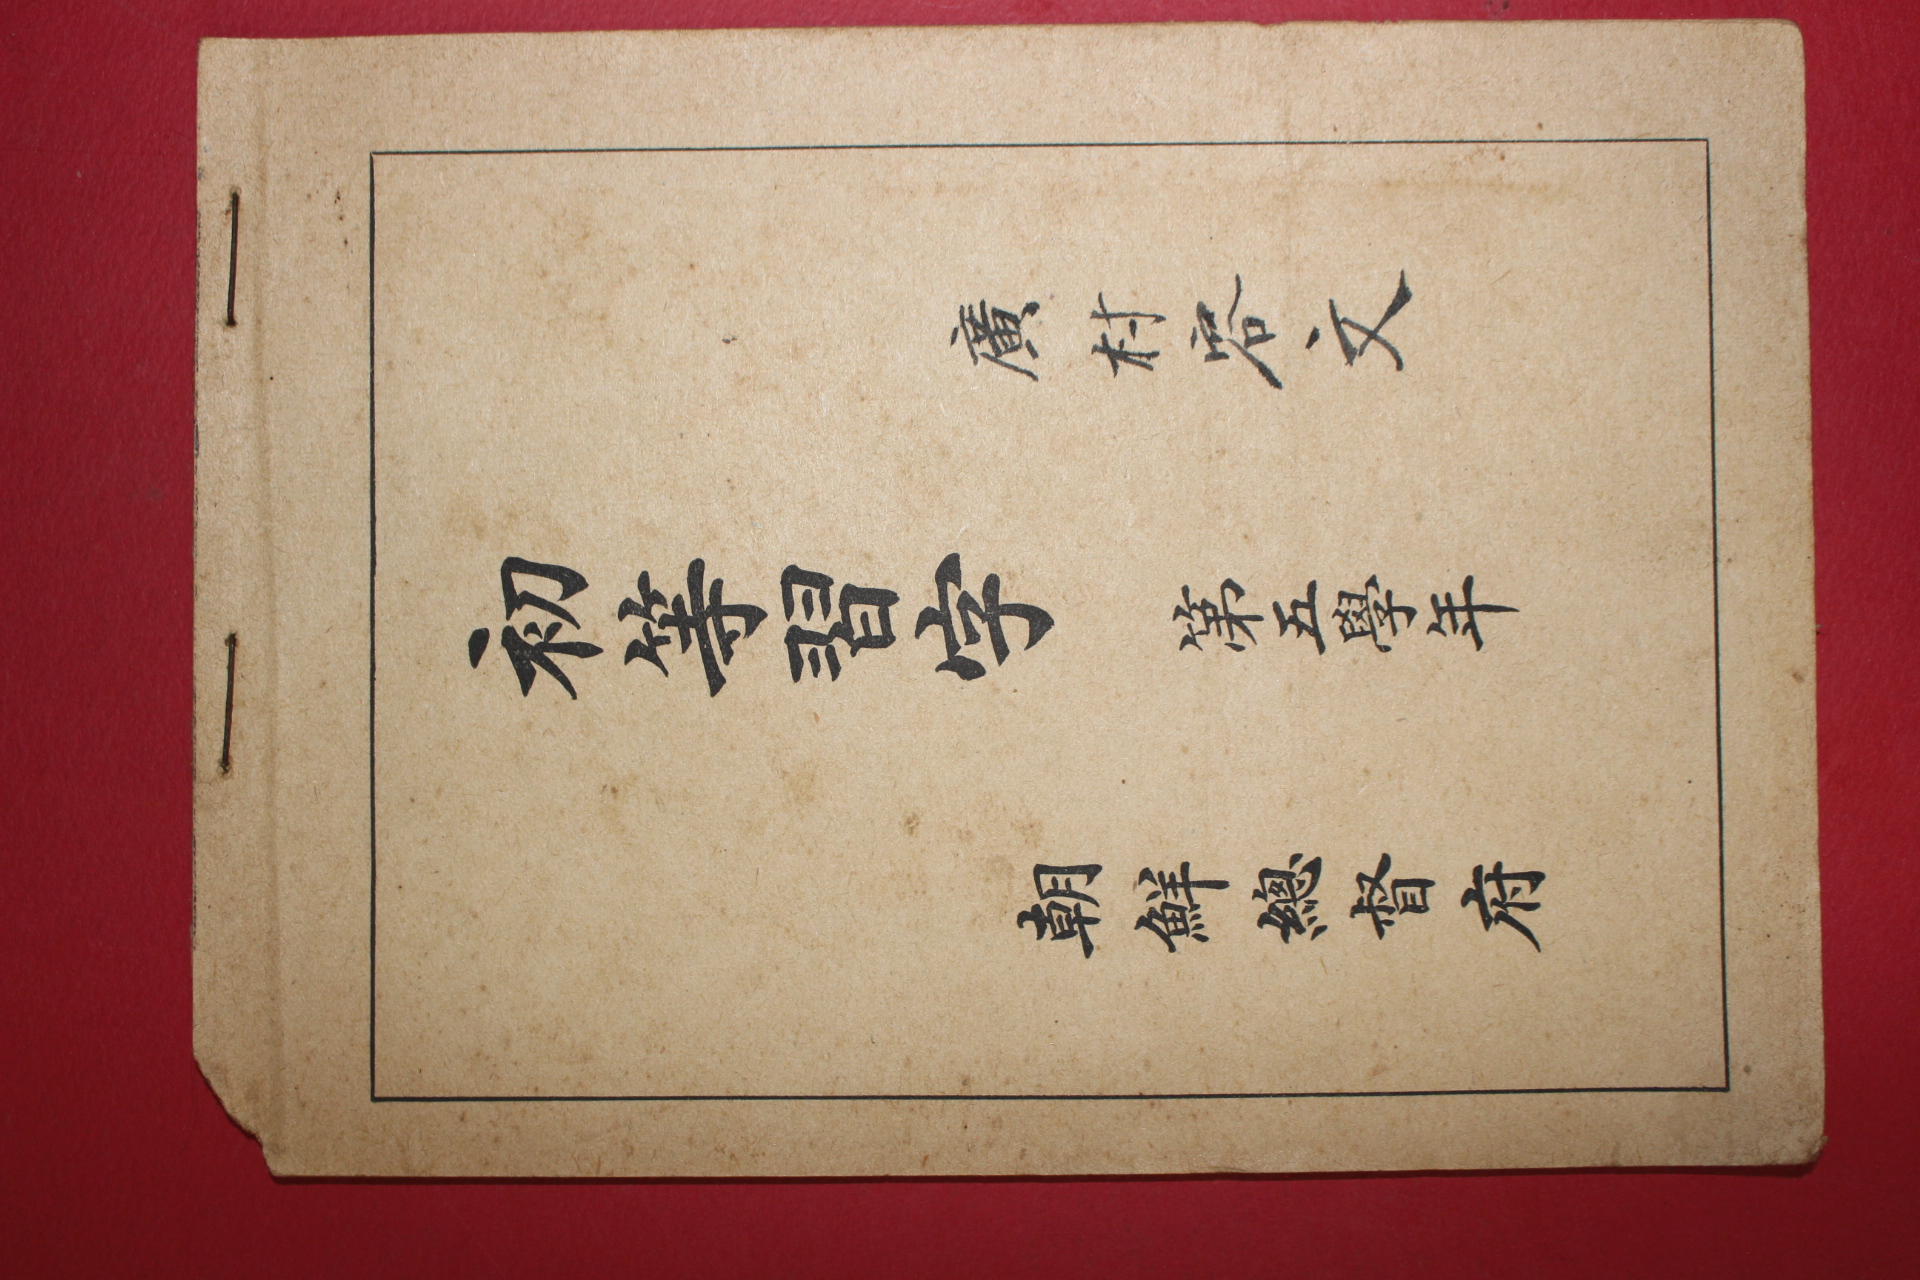 廣村容文
初等習字 第五學年
朝鮮總督府